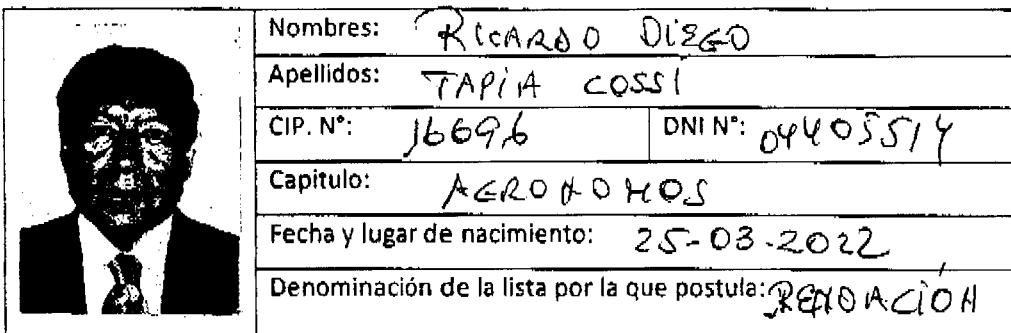 Nombres: RICARDO DIEGO
Apellidos: TAPIA COSSI
CIP. N°: 16696 DNI N°: 04405514
Capitulo: AGRONOMOS
Fecha y lugar de nacimiento: 25-03-2022
Denominación de la lista por la que postula: RENOACIÓN